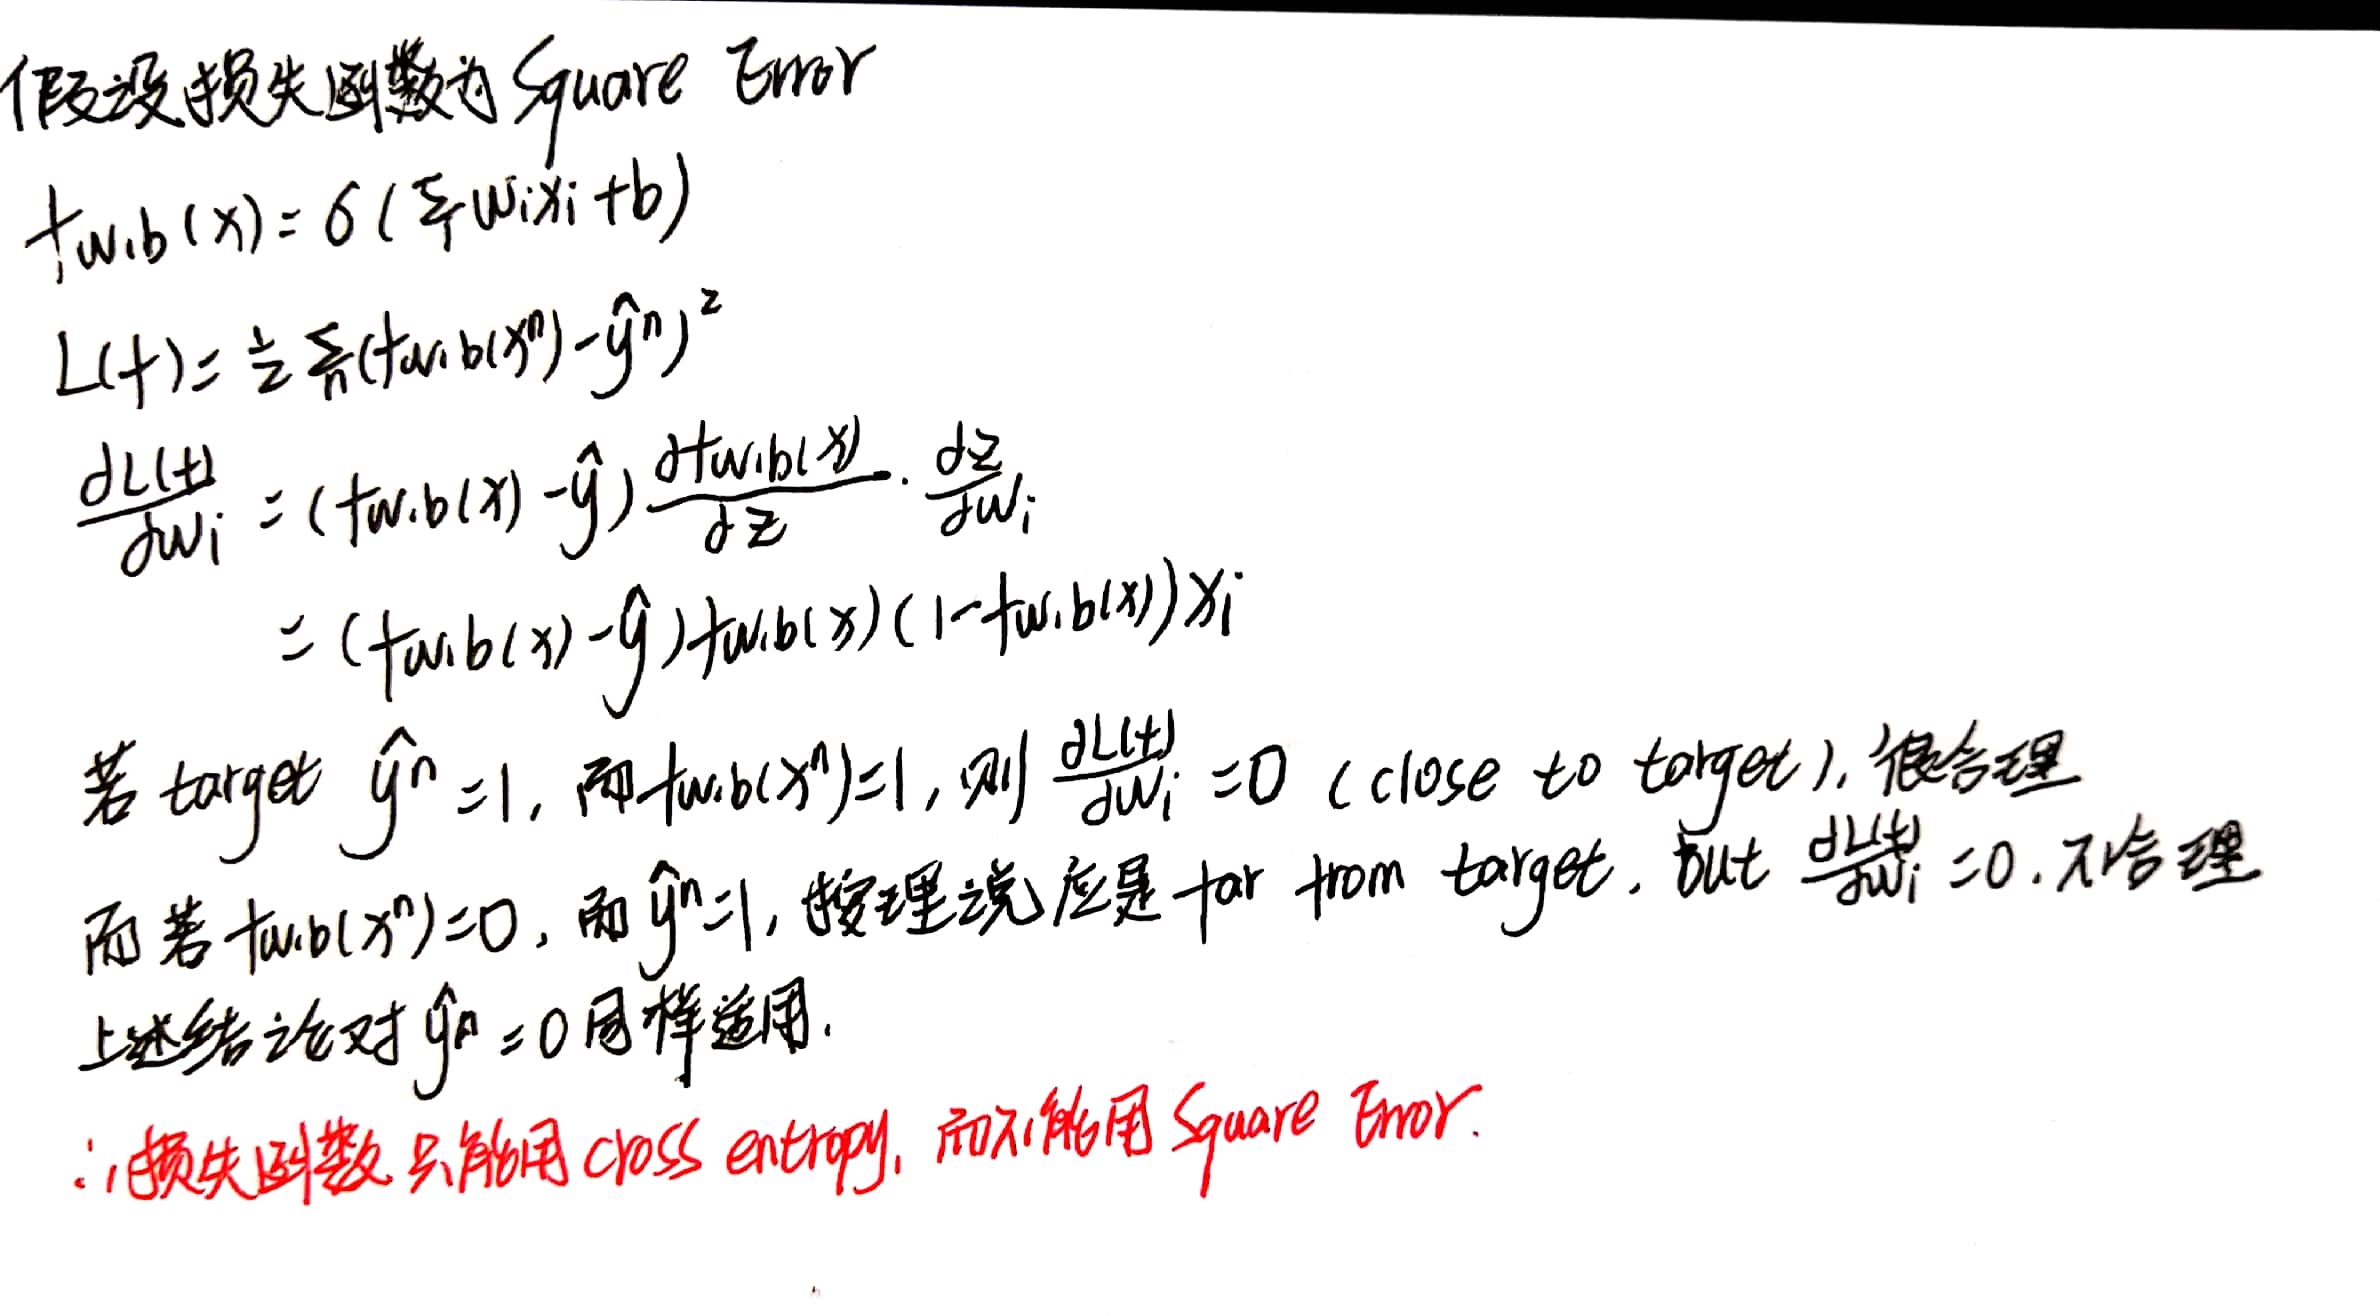 假设损失函数为 Square Error
f_{w,b}(x) = σ(∑_i w_i x_i + b)
L(f) = 1/2 ∑_n (f_{w,b}(x^n) - ŷ^n)^2
∂L(f)/∂w_i = (f_{w,b}(x) - ŷ) ∂f_{w,b}(x)/∂z · ∂z/∂w_i
= (f_{w,b}(x) - ŷ) f_{w,b}(x) (1 - f_{w,b}(x)) x_i
若 target ŷ^n = 1, 而 f_{w,b}(x^n) = 1, 则 ∂L(f)/∂w_i = 0 (close to target), 很合理
而若 f_{w,b}(x^n) = 0, 而 ŷ^n = 1, 按理说应是 far from target, but ∂L(f)/∂w_i = 0. 不合理
上述结论对 ŷ^n = 0 同样适用.
∴ 损失函数只能用 cross entropy, 而不能用 Square Error.